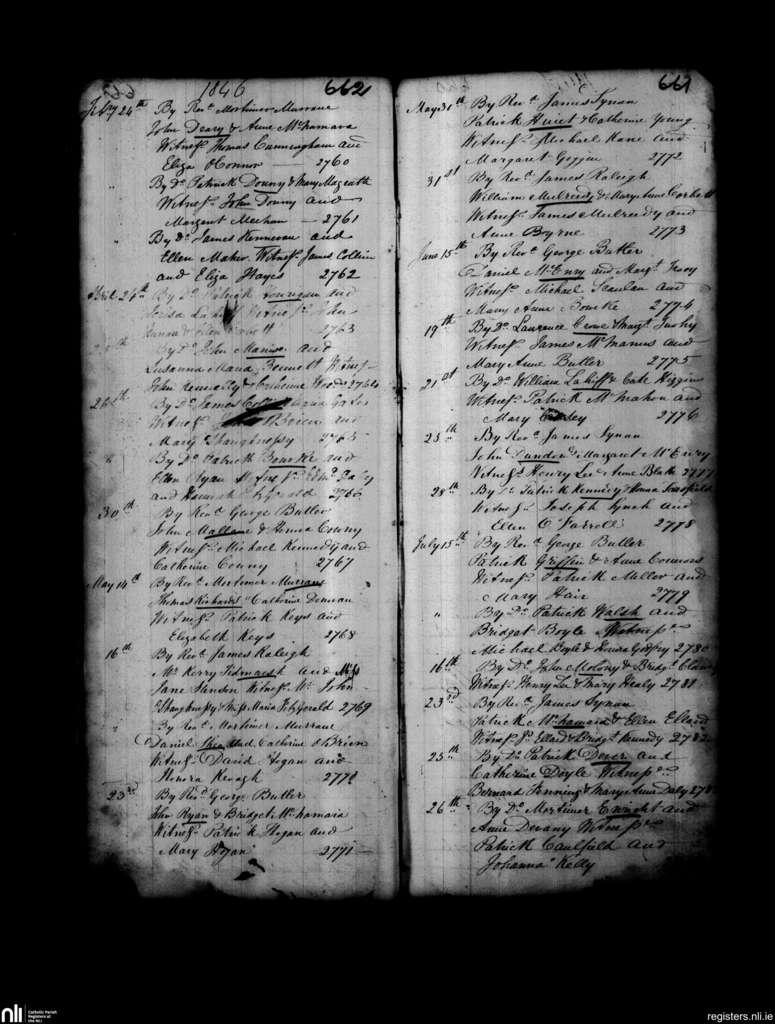 1846 662
Feby 24th By Revd Mortimer Murrane
John Deary & Anne McNamara
Witness Thomas Cunningham and
Eliza O'Connor — 2760
By Do Patrick Downy & Mary Magrath
Witness John Downy and
Margaret Meehan — 2761
By Do James Kennevan and
Ellen Maher Witness James Collins
and Eliza Hayes 2762
April 24th By Do Patrick and
John
2763
By Do John and
Susanna Maria Bennett Witness
John & Catherine Woods 2764
26th By Do James
Witness O'Brien and
Mary Shaughnessy 2765
" By Do Patrick Bourke and
Ellen Ryan
and Hannah Fitzgerald 2766
30th By Revd George Butler
John Mallane & Honora Conny
Witness Michael Kennedy and
Catherine Conny 2767
May 14th By Revd Mortimer Murrane
Thomas Richards Catherine
Witness Patrick Keys and
Elizabeth Keys 2768
16th By Revd James Raleigh
Mr Kerry Tidmarsh and Miss
Jane Witness Mr John
Shaughnessy & Miss Maria Fitzgerald 2769
" By Revd Mortimer Murrane
Daniel and Catherine O'Brien
Witness David Hogan and
Honora Keough 2770
23rd By Revd George Butler
John Ryan & Bridget McNamara
Witness Patrick Hogan and
Mary Hogan 2771
661
May 31th By Revd James Synan
Patrick & Catherine Young
Witness Michael Kane and
Margaret 2772
31st By Revd James Raleigh
William Mulreedy & Mary Anne Corbett
Witness James Mulreedy and
Anne Byrne 2773
June 15th By Revd George Butler
Daniel McEnry and Margt
Witness Michael Scanlan and
Mary Anne Bourke 2774
19th By Do Laurence Crowe & Margt
Witness James McManus and
Mary Anne Butler 2775
21st By Do William Lahiff & Cate Higgins
Witness Patrick McMahon and
Mary 2776
25th By Revd James Synan
John Dundon & Margaret McEnry
Witness Henry Lee & Anne Blake 2777
28th By Do Patrick Kennedy & Anna
Witness Joseph Lynch and
Ellen O'Farrell 2778
July 15th By Revd George Butler
Patrick Griffin & Anne Connors
Witness Patrick Miller and
Mary Hair 2779
" By Do Patrick Walsh and
Bridget Boyle Witness
Michael Boyle & Louisa Godfrey 2780
16th By Do John Molony & Bridgt
Witness Henry Lee & Mary Healy 2781
23rd By Revd James Synan
Patrick McNamara & Ellen Ellard
Witness Ellard & Bridgt Kennedy 2782
25th By Do Patrick Dover and
Catherine Doyle Witness
Bernard Fenning & Mary Anne Daly
26th By Do Mortimer Enright and
Anne Devany Witness
Patrick Caulfield and
Johanna Kelly
nli Catholic Parish
Registers at
the NLI
registers.nli.ie